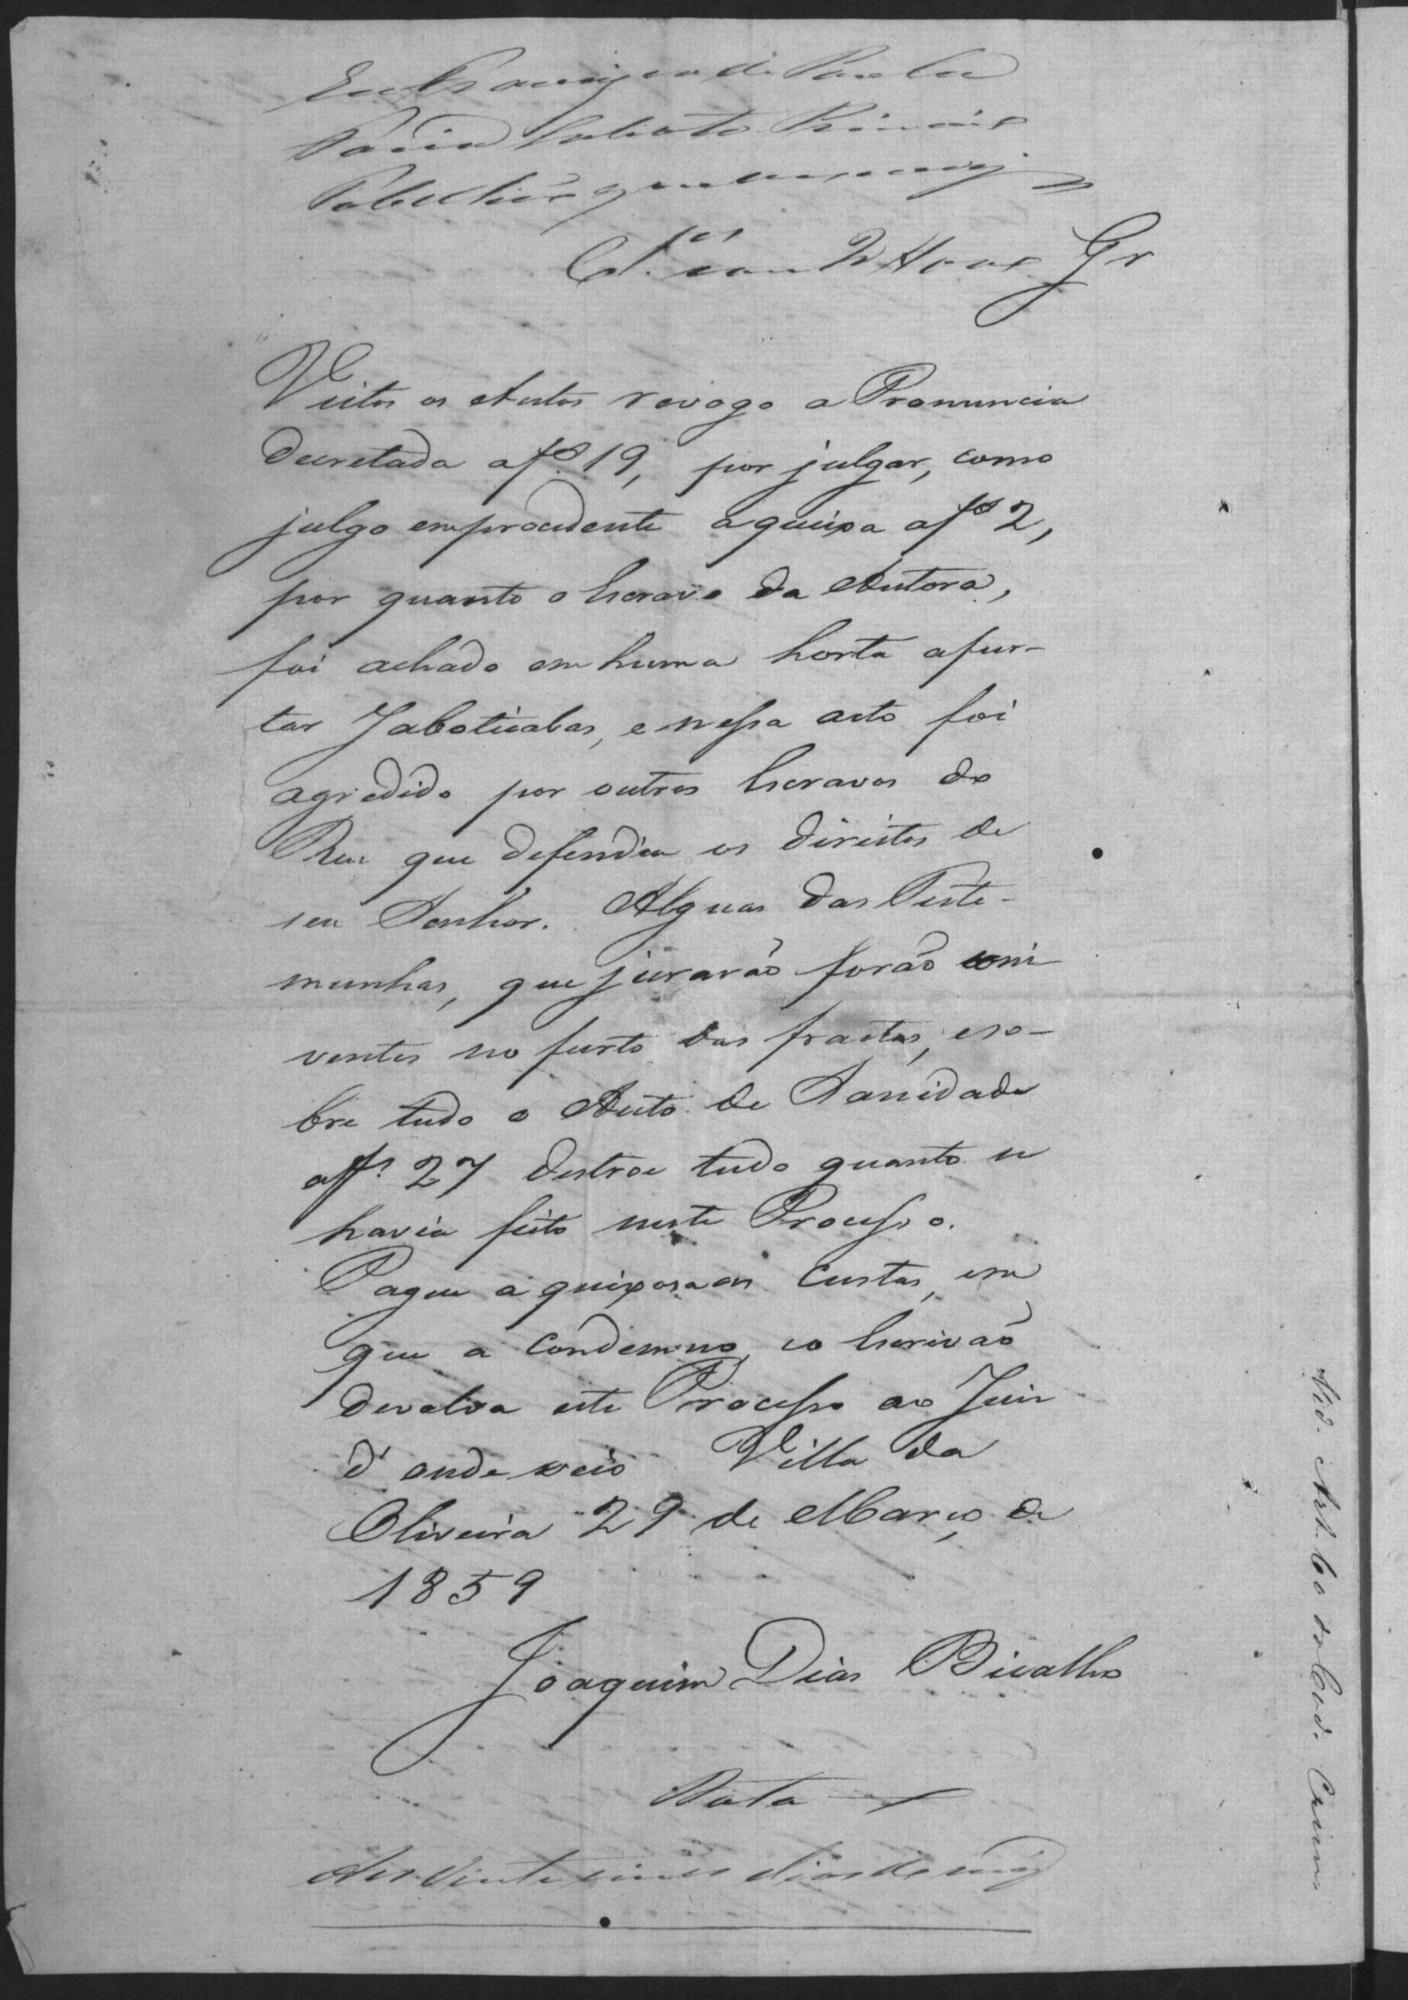 Eu Francisco de Paula
Tabelliam que escrevy
Vistos os Autos revogo a Pronuncia
decretada a fs. 19, por julgar, como
julgo emprocedente a queixa a fs 2,
por quanto o Escravo da Autora,
foi achado em huma horta a fur-
tar Jaboticabas, e nessa acto foi
agredido por outros Escravos do
Reu que defendia os direitos de
seu Senhor. Alguas das Teste-
munhas, que jurarão forão coni
ventes no furto das fructas, e so-
bre tudo o Auto de Sanidade
a fs. 27 destroe tudo quanto se
havia feito neste Processo.
Pague a queixosa as custas, em
que a condemno, e o Escrivão
devolva este Processo ao Juis
d'onde veio Villa da
Oliveira 29 de Março de
1859
Joaquim Dias Bicalho
Data
Aos vinte nove dias do mez